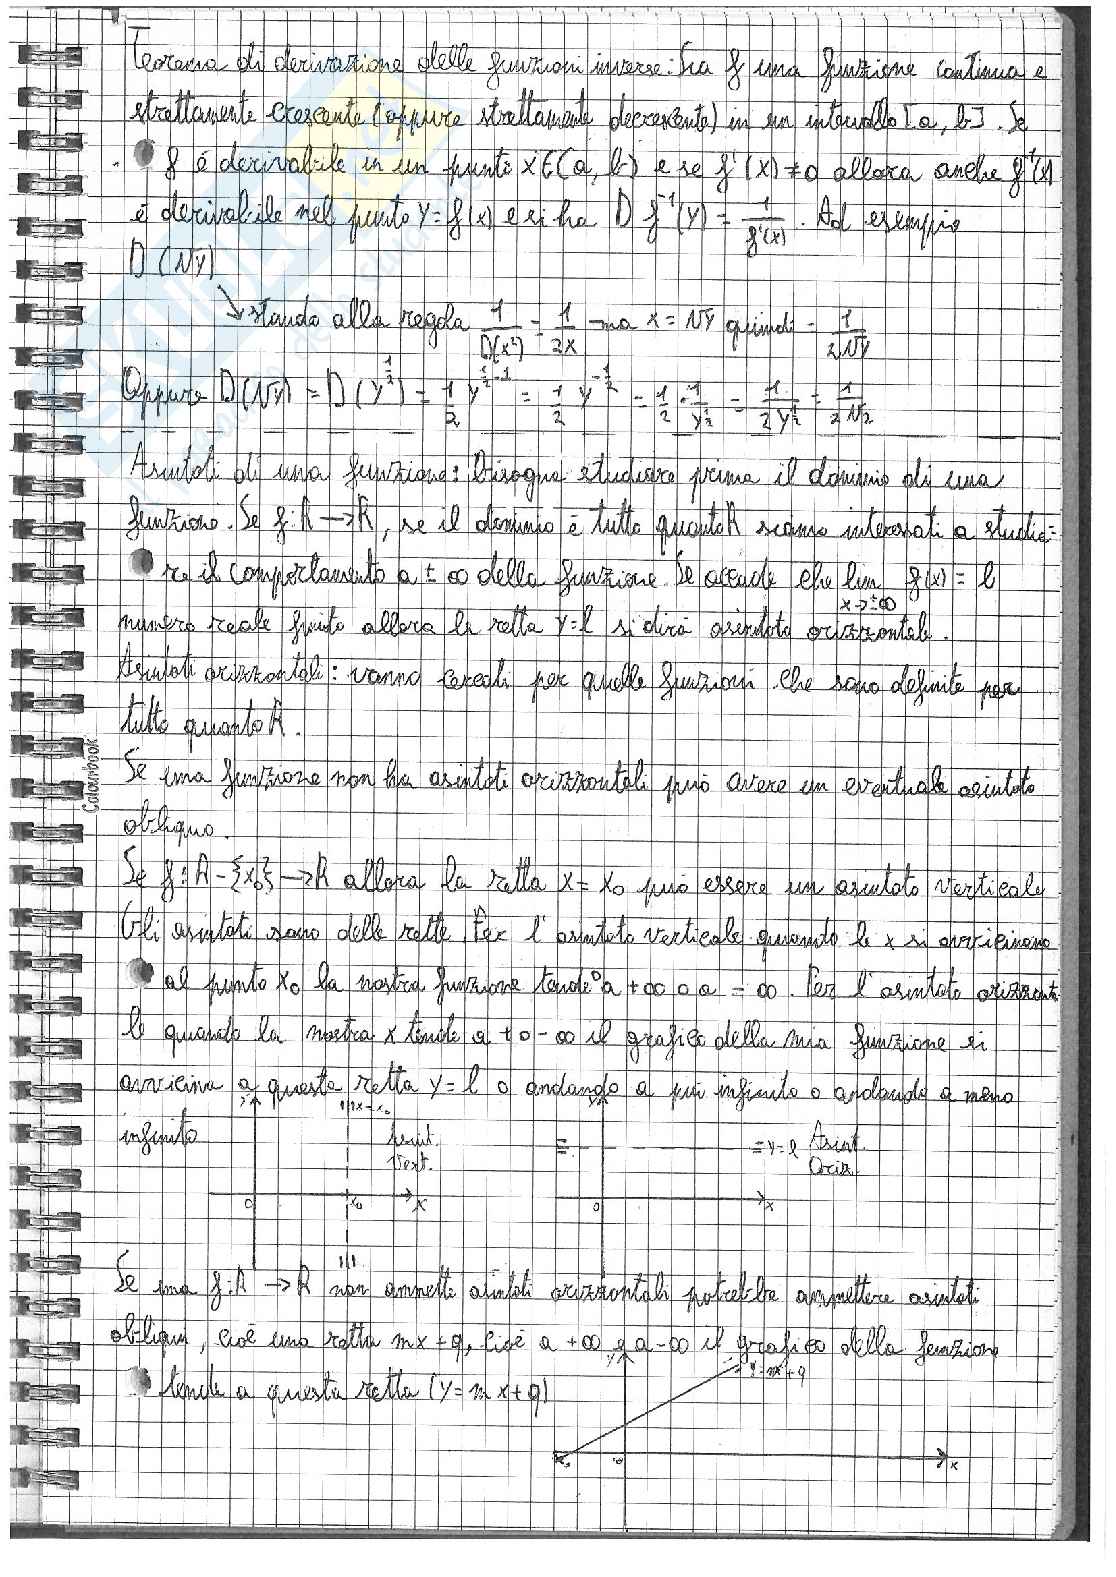 Teorema di derivazione delle funzioni inverse: Sia f una funzione continua e
strettamente crescente (oppure strettamente decrescente) in un intervallo [a, b]. Se
f è derivabile in un punto x∈(a, b) e se f'(x) ≠ 0 allora anche f⁻¹(x)
è derivabile nel punto y = f(x) e si ha D f⁻¹(y) = 1/f'(x). Ad esempio
D(√y)
↘ stando alla regola 1/D(x²) = 1/2x ma x = √y quindi = 1/2√y
Oppure D(√y) = D(y^½) = ½ y^(½-1) = ½ y^(-½) = ½ · 1/y^½ = 1/2y^½ = 1/2√2
Asintoti di una funzione: Bisogna studiare prima il dominio di una
funzione. Se f: R → R, se il dominio è tutto quanto R siamo interessati a studia=
re il comportamento a ± ∞ della funzione. Se accade che lim x→±∞ f(x) = l
numero reale finito allora la retta y=l si dirà asintoto orizzontale.
Asintoti orizzontali: vanno cercati per quelle funzioni che sono definite per
tutto quanto R.
Se una funzione non ha asintoti orizzontali può avere un eventuale asintoto
obliquo.
Se f: R - {x₀} → R allora la retta x = x₀ può essere un asintoto verticale
Gli asintoti sono delle rette. Per l'asintoto verticale quando le x si avvicinano
al punto x₀ la nostra funzione tende o a +∞ o a -∞. Per l'asintoto orizzonta
le quando la nostra x tende a + o -∞ il grafico della mia funzione si
avvicina a questa retta y = l o andando a più infinito o andando a meno
infinito
y
x=x₀
Asint.
Vert.
0
x₀
x
y
y=l
Asint.
Oriz.
0
x
Se una f: R → R non ammette asintoti orizzontali potrebbe ammettere asintoti
obliqui, cioè una retta mx + q, cioè a +∞ o a -∞ il grafico della funzione
tende a questa retta (y = mx + q)
y
y=mx+q
0
x
Colourbook